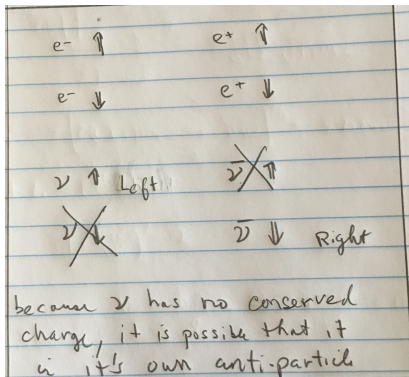 e- ⇑ e+ ⇑
e- ⇓ e+ ⇓
ν ⇑ Left ν̄ ⇑
ν ⇓ ν̄ ⇓ Right
because ν has no conserved
charge, it is possible that it
is it's own anti-particle